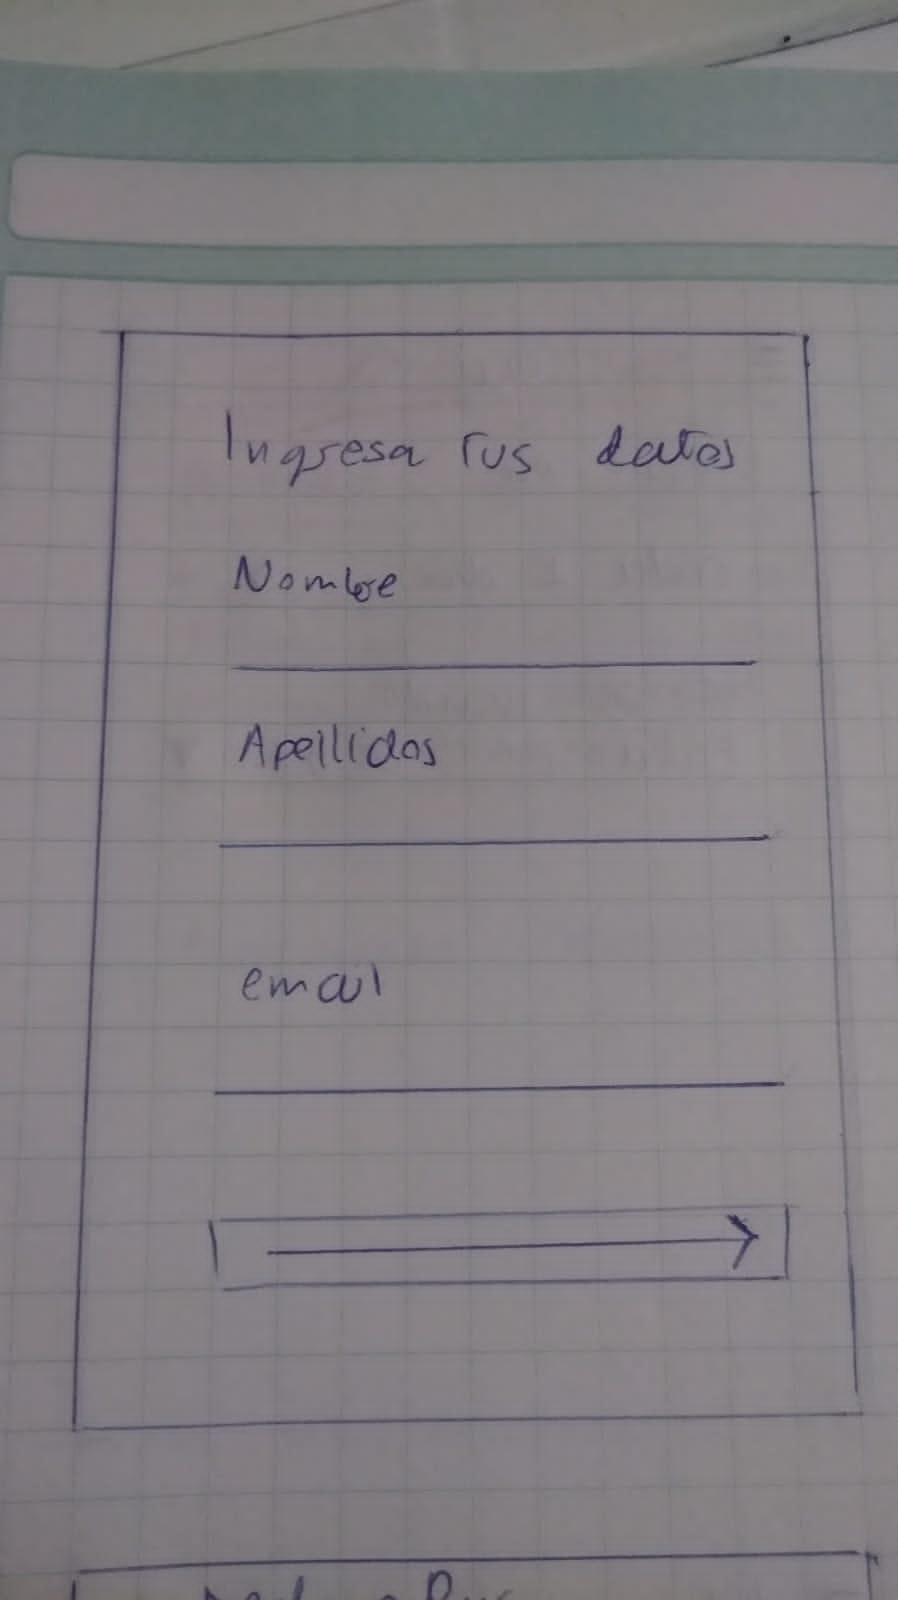 Ingresa tus datos
Nombre
Apellidos
email